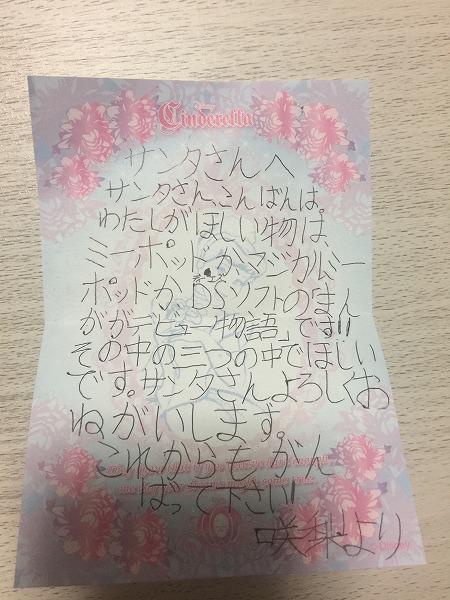 Cinderella
サンタさんへ
サンタさん、こんばんは。
わたしがほしい物は、
ミーポッドか、マジカルミー
ポッドか、DSソフトのまん
ががデビュー物語、です!!
その中の三つの中でほしい
です。サンタさんよろしくお
ねがいします。
これからもがん
ばって下さい!
咲より